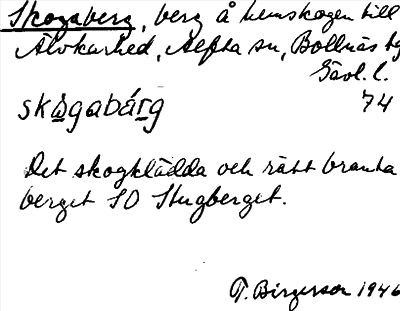 Skogaberg, berg å hemskogen till
Älvkarhed, Alfta sn, Bollnäs tg
Gävl. l.
skògabárg 74
Det skogklädda och rätt branta
berget SO Stugberget.
T. Birgerson 1946